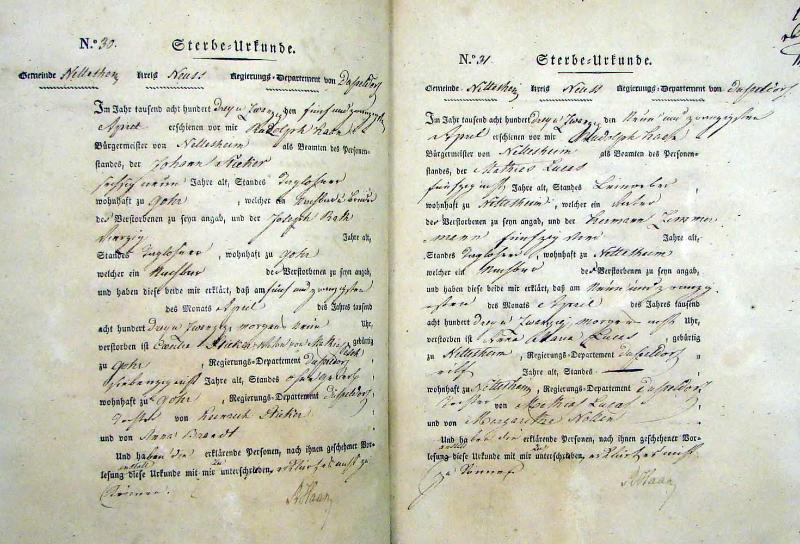 N.º 30. Sterbe-Urkunde.
Gemeinde Nettesheim Kreis Neuss Regierungs-Departement von Dusseldorf
Im Jahr tausend acht hundert drey u zwanzig den fünf und zwanzigsten
April erschienen vor mir Rudolph Haan
Bürgermeister von Nettesheim als Beamten des Personen-
standes, der Johann
sechzig neun Jahre alt, Standes Taglohner
wohnhaft zu Gohr, welcher ein
des Verstorbenen zu seyn angab, und der Joseph
vierzig Jahre alt,
Standes Taglohner, wohnhaft zu Gohr
welcher ein Nachbar des Verstorbenen zu seyn angab,
und haben diese beide mir erklärt, daß am fünf und zwanzigsten
des Monats April des Jahrs tausend
acht hundert drey u zwanzig morgens neun Uhr,
verstorben ist gebürtig
zu Gohr, Regierungs-Departement Dusseldorf
Jahre alt, Standes
wohnhaft zu Gohr, Regierungs-Departement Dusseldorf
Tochter von Heinrich
und von Anna Brandt
Und haben die erklärende Personen, nach ihnen geschehener Vor-
lesung diese Urkunde mit mir unterschrieben, nicht zu
können.
RHaan
N.º 31. Sterbe-Urkunde.
Gemeinde Nettesheim Kreis Neuss Regierungs-Departement von Dusseldorf
Im Jahr tausend acht hundert drey u zwanzig den neun und zwanzigsten
April erschienen vor mir Rudolph Haan
Bürgermeister von Nettesheim als Beamten des Personen-
standes, der Mathias Lucas
fünfzig Jahre alt, Standes
wohnhaft zu Nettesheim, welcher ein Vater
des Verstorbenen zu seyn angab, und der Hermann Zimmer
mann fünfzig Jahre alt,
Standes Taglohner, wohnhaft zu Nettesheim
welcher ein Nachbar des Verstorbenen zu seyn angab,
und haben diese beide mir erklärt, daß am neun und zwanzig
sten des Monats April des Jahres tausend
acht hundert drey u zwanzig morgens acht Uhr,
verstorben ist Anna Maria Lucas gebürtig
zu Nettesheim, Regierungs-Departement Dusseldorf
Jahre alt, Standes
wohnhaft zu Nettesheim, Regierungs-Departement Dusseldorf
Tochter von Mathias Lucas
und von Margaretha Nolten
Und haben die erklärende Personen, nach ihnen geschehener Vor-
lesung diese Urkunde mit mir unterschrieben, nicht
zu können
RHaan